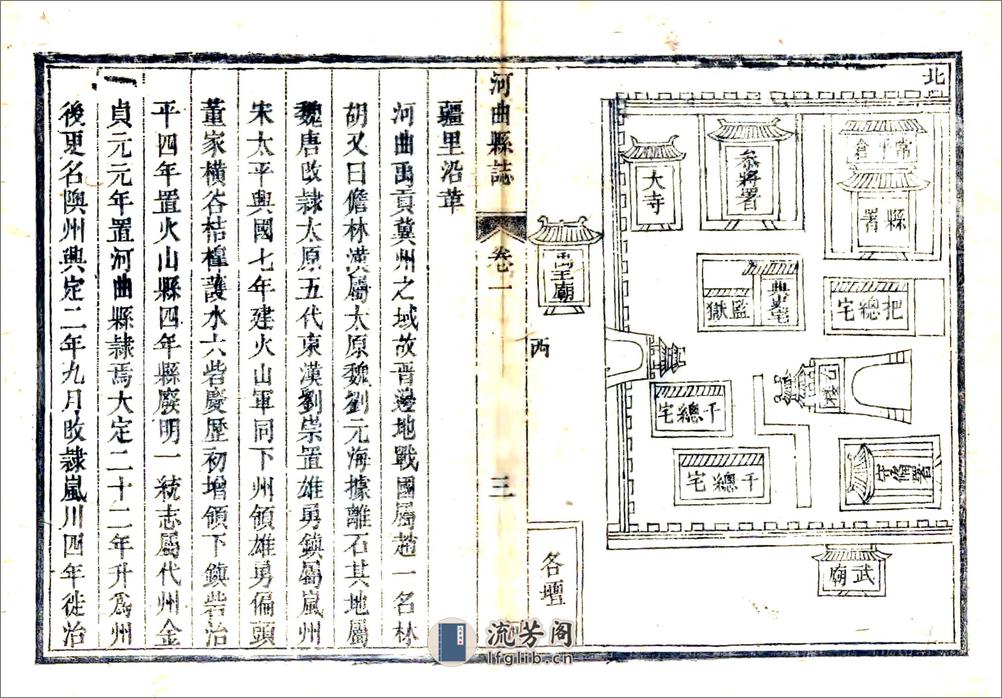 北
常平倉
縣署
參將署
大寺
典史宅
監獄
把總宅
千總宅
千總宅
守備署
武廟
禹王廟
西
各壇
河曲縣誌
卷一
三
疆里沿革
河曲禹貢冀州之域故晉邊地戰國屬趙一名林
胡又曰儋林漢屬太原魏劉元海據離石其地屬
魏唐改隷太原五代東漢劉崇置雄勇鎮屬嵐州
宋太平興國七年建火山軍同下州領雄勇偏頭
董家橫谷桔橰護水六砦慶歷初增領下鎮砦治
平四年置火山縣四年縣廢明一統志屬代州金
貞元元年置河曲縣隷焉大定二十二年升爲州
後更名隩州興定二年九月改隷嵐川四年徙治
流芳阁
lfglib.cn